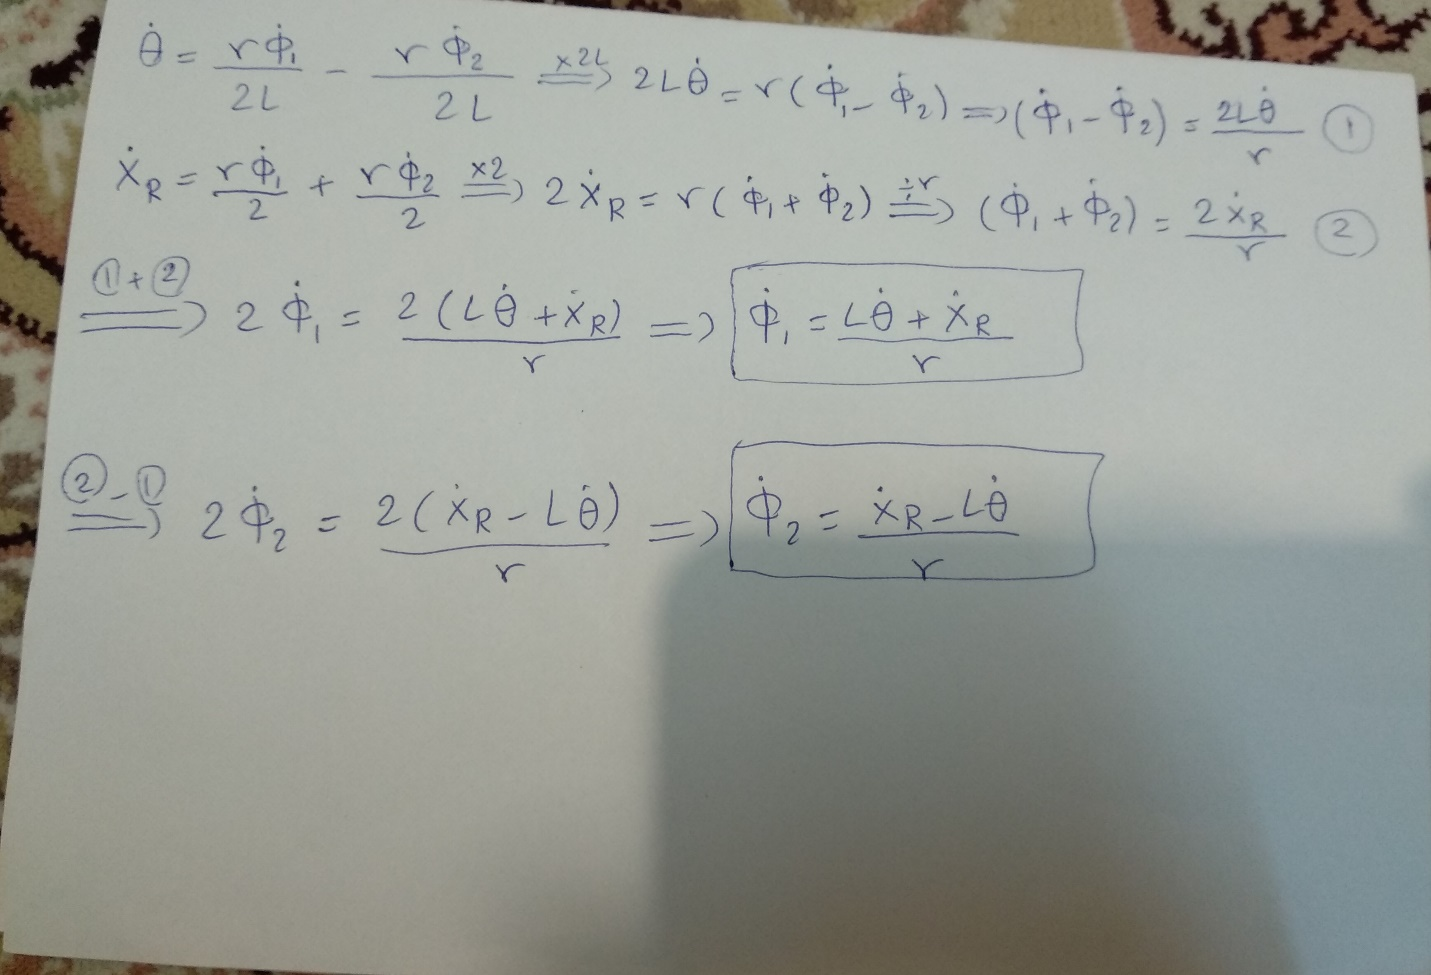 θ̇ = rφ̇₁/2L - rφ̇₂/2L =×2L=> 2Lθ̇ = r(φ̇₁ - φ̇₂) => (φ̇₁ - φ̇₂) = 2Lθ̇/r ①
ẋR = rφ̇₁/2 + rφ̇₂/2 =×2=> 2ẋR = r(φ̇₁ + φ̇₂) =÷r=> (φ̇₁ + φ̇₂) = 2ẋR/r ②
=①+②=> 2φ̇₁ = 2(Lθ̇ + ẋR)/r => φ̇₁ = Lθ̇ + ẋR/r
=②-①=> 2φ̇₂ = 2(ẋR - Lθ̇)/r => φ̇₂ = ẋR - Lθ̇/r